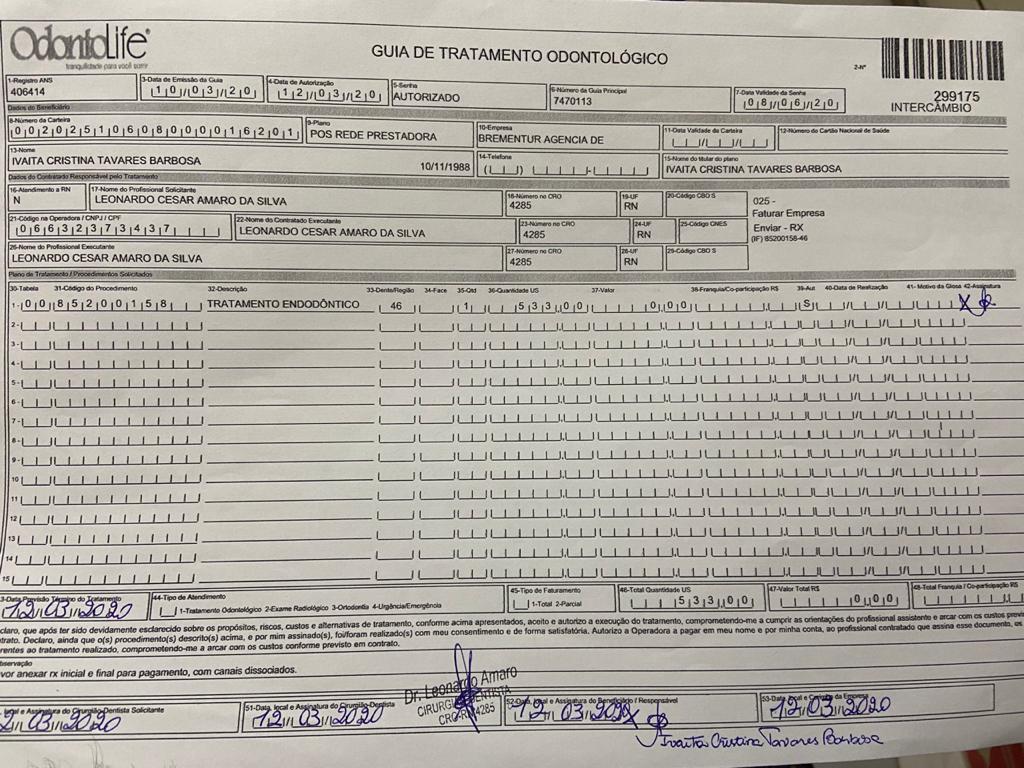 OdontoLife
tranquilidade para você sorrir
GUIA DE TRATAMENTO ODONTOLÓGICO
2-Nº
299175
INTERCÂMBIO
1-Registro ANS
406414
3-Data de Emissão da Guia
10/03/20
4-Data de Autorização
12/03/20
5-Senha
AUTORIZADO
6-Número da Guia Principal
7470113
7-Data Validade da Senha
08/06/20
Dados do Beneficiário
8-Número da Carteira
00202510608000016201
9-Plano
POS REDE PRESTADORA
10-Empresa
BREMENTUR AGENCIA DE
11-Data Validade da Carteira
12-Número do Cartão Nacional de Saúde
13-Nome
IVAITA CRISTINA TAVARES BARBOSA 10/11/1988
14-Telefone
15-Nome do titular do plano
IVAITA CRISTINA TAVARES BARBOSA
Dados do Contratado Responsável pelo Tratamento
16-Atendimento a RN
N
17-Nome do Profissional Solicitante
LEONARDO CESAR AMARO DA SILVA
18-Número no CRO
4285
19-UF
RN
20-Código CBO S
025 -
Faturar Empresa
Enviar - RX
(IF) 85200158-46
21-Código na Operadora / CNPJ / CPF
06632373437
22-Nome do Contratado Executante
LEONARDO CESAR AMARO DA SILVA
23-Número no CRO
4285
24-UF
RN
25-Código CNES
26-Nome do Profissional Executante
LEONARDO CESAR AMARO DA SILVA
27-Número no CRO
4285
28-UF
RN
29-Código CBO S
Plano de Tratamento / Procedimentos Solicitados
30-Tabela 31-Código do Procedimento 32-Descrição 33-Dente/Região 34-Face 35-Qtd 36-Quantidade US 37-Valor 38-Franquia/Co-participação R$ 39-Aut 40-Data de Realização 41- Motivo da Glosa 42-Assinatura
1- 00 85200158 TRATAMENTO ENDODÔNTICO 46 1 533,00 0,00 S X
2-
3-
4-
5-
6-
7-
8-
9-
10
11
12
13
14
15
3-Data Previsão Término do Tratamento
12/03/2020
44-Tipo de Atendimento
1-Tratamento Odontológico 2-Exame Radiológico 3-Ortodontia 4-Urgência/Emergência
45-Tipo de Faturamento
1-Total 2-Parcial
46-Total Quantidade US
533,00
47-Valor Total R$
0,00
48-Total Franquia / Co-participação R$
claro, que após ter sido devidamente esclarecido sobre os propósitos, riscos, custos e alternativas de tratamento, conforme acima apresentados, aceito e autorizo a execução do tratamento, comprometendo-me a cumprir as orientações do profissional assistente e arcar com os custos previ
trato. Declaro, ainda que o(s) procedimento(s) descrito(s) acima, e por mim assinado(s), foi/foram realizado(s) com meu consentimento e de forma satisfatória. Autorizo a Operadora a pagar em meu nome e por minha conta, ao profissional contratado que assina esse documento, os
rentes ao tratamento realizado, comprometendo-me a arcar com os custos conforme previsto em contrato.
bservação
vor anexar rx inicial e final para pagamento, com canais dissociados.
Dr. Leonardo Amaro
CIRURGIÃO DENTISTA
CRO-RN 4285
local e Assinatura do Cirurgião-Dentista Solicitante
2/03/2020
51-Data, local e Assinatura do Cirurgião-Dentista
12/03/2020
52-Data, local e Assinatura do Beneficiário / Responsável
12/03/2020 X
53-Data, local e Carimbo da Empresa
12/03/2020
Ivaita Cristina Tavares Barbosa